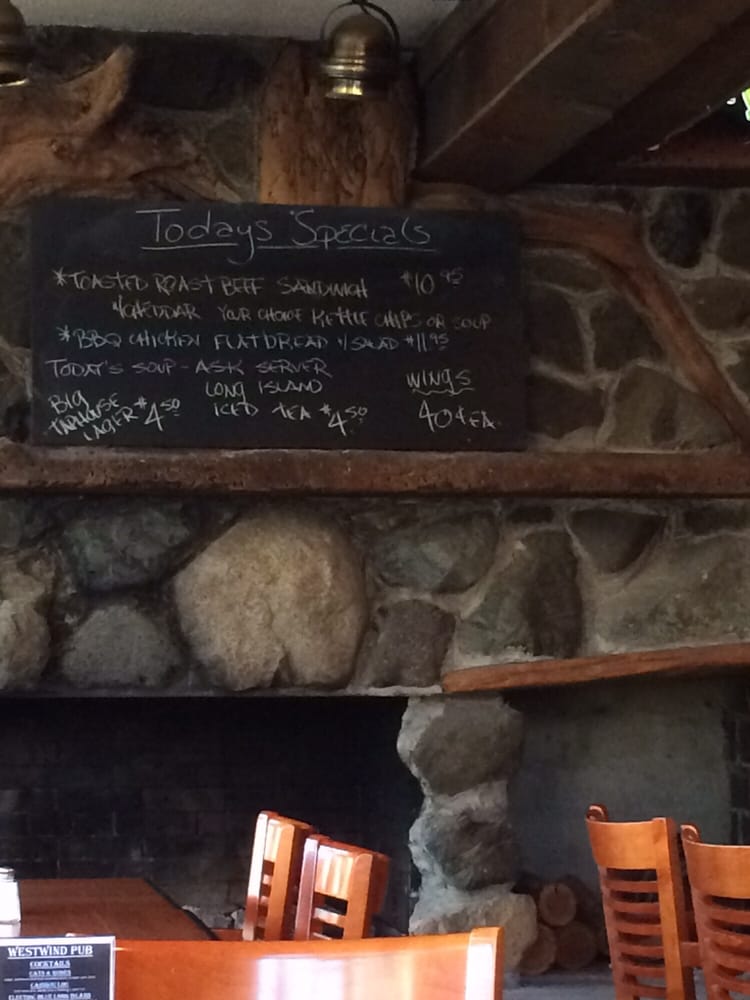 Todays Specials
*TOASTED ROAST BEEF SANDWICH $10 95
W/CHEDDAR YOUR CHOICE KETTLE CHIPS OR SOUP
*BBQ CHICKEN FLATBREAD W/SALAD $11.95
TODAY'S SOUP - ASK SERVER
BIG TAPHOUSE LAGER $4 50
LONG ISLAND ICED TEA $4 50
WINGS
40¢ EA.
WESTWIND PUB
COCKTAILS